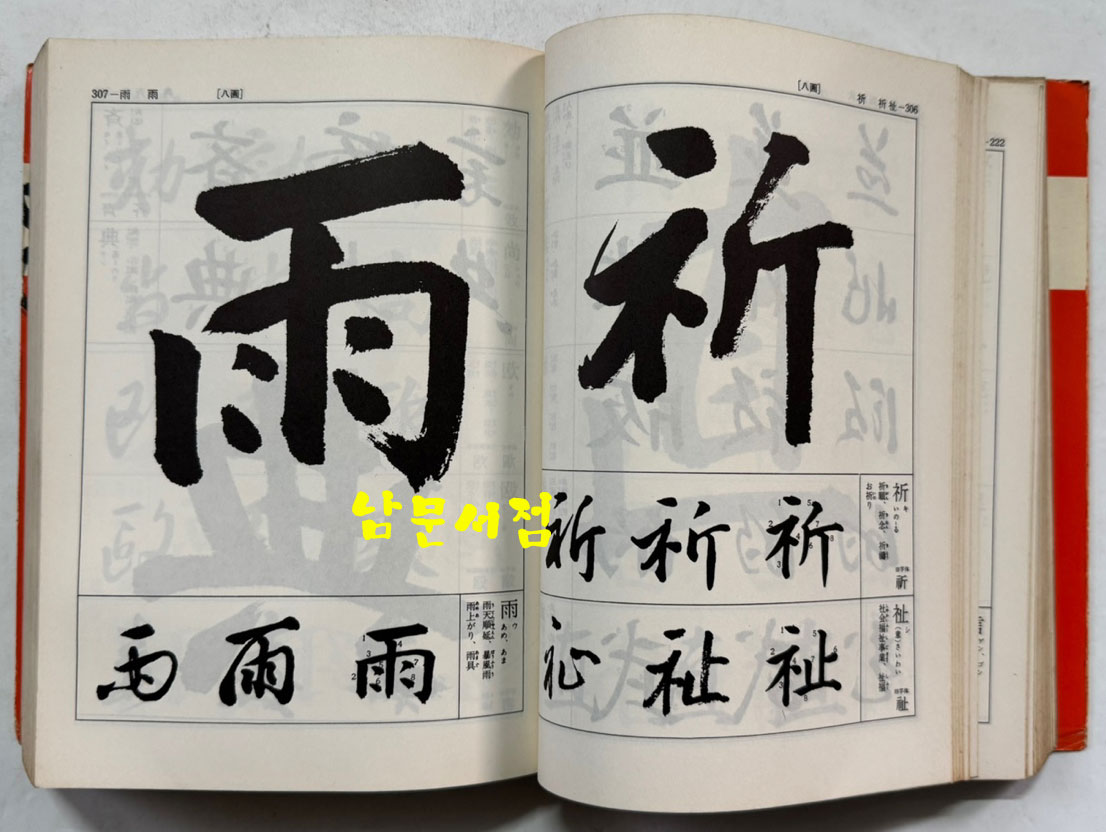 祈 祈祉—306
[八画]
祈
祈 キ
いのーる
お祈り
旧字体 祈
祈 祈 祈
祉 シ
(意)さいわい
社会福祉事業、祉福
旧字体 祉
祉 祉 祉
307—雨 雨
[八画]
雨
雨 ウ
あめ、あま
雨天順延、暴風雨
雨上がり、雨具
雨 雨 雨
남문서점
-222